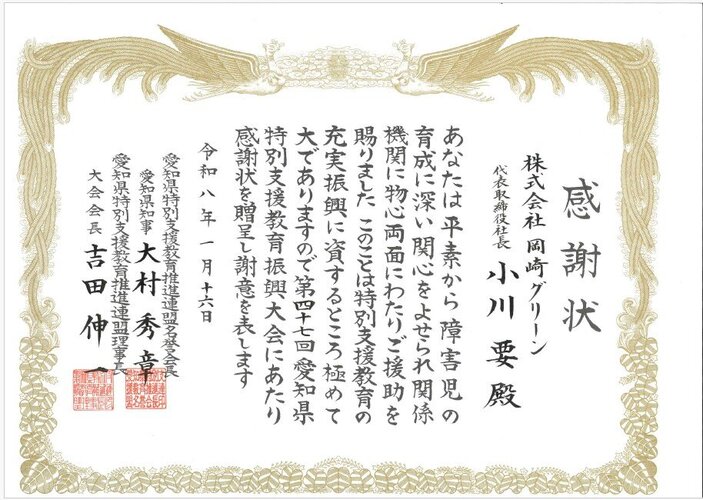 感謝状
株式会社 岡崎グリーン
代表取締役社長 小川 要 殿
あなたは平素から障害児の
育成に深い関心をよせられ関係
機関に物心両面にわたりご援助を
賜りました このことは特別支援教育の
充実振興に資するところ極めて
大でありますので第四十七回愛知県
特別支援教育振興大会にあたり
感謝状を贈呈し謝意を表します
令和八年一月十六日
愛知県特別支援教育推進連盟名誉会長
愛知県知事 大村秀章
愛知県特別支援教育推進連盟理事長
大会会長 吉田伸一